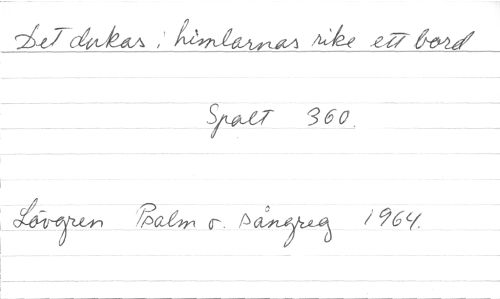 Det dukas i himlarnas rike ett bord
Spalt 360.
Lövgren Psalm o. sångreg 1964.